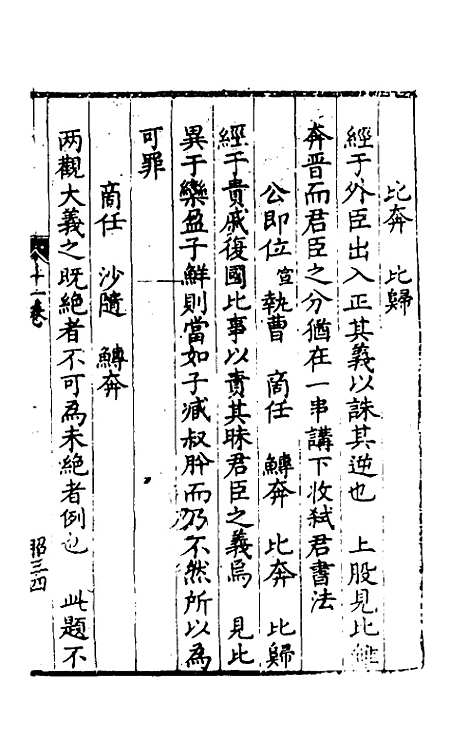 比奔　比歸
經于外臣出入正其義以誅其逆也　上股見比雖
奔晋而君臣之分猶在一串講下收弑君書法
公即位宣　執曹　商任　鱄奔　比奔　比歸
經于貴戚復國比事以責其昧君臣之義焉　見比
異于欒盈子鮮則當如子臧叔肸而乃不然所以為
可罪
商任　沙隨　鱄奔
两觀大義之既絶者不可為未絶者例也　此題不
十一卷
昭三四